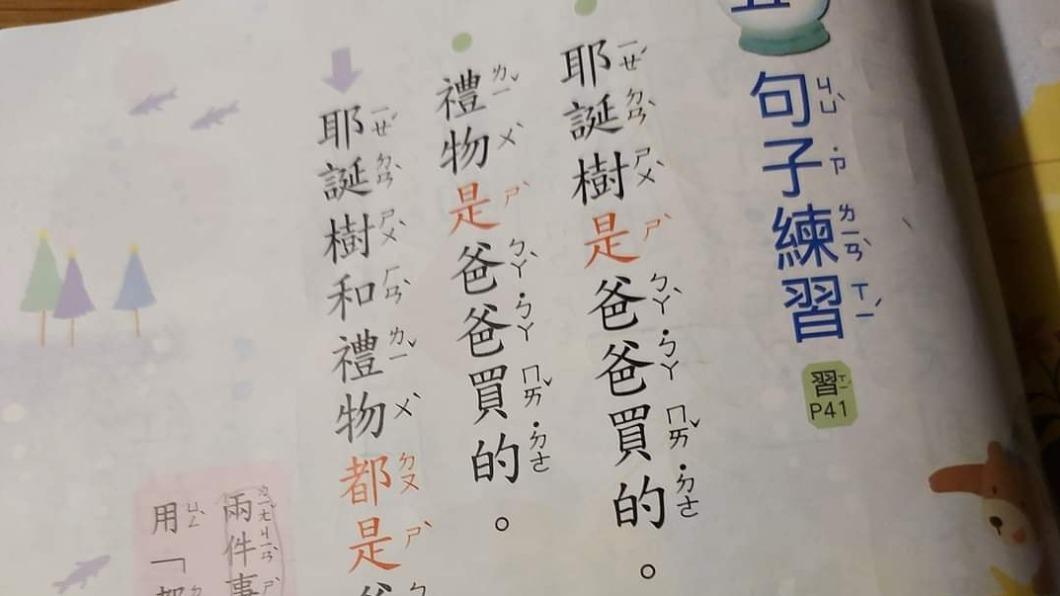 五
句子練習
習P41
耶誕樹是爸爸買的。
禮物是爸爸買的。
耶誕樹和禮物都是爸
兩件事
用「都